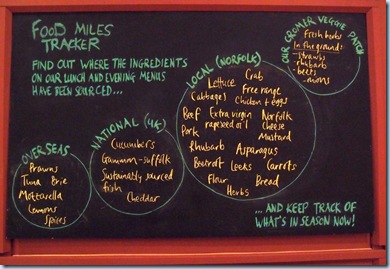 FOOD MILES
TRACKER
FIND OUT WHERE THE INGREDIENTS
ON OUR LUNCH AND EVENING MENUS
HAVE BEEN SOURCED...
OVERSEAS
Prawns
Tuna Brie
Mozzarella
Lemons
Spices
NATIONAL (UK)
Cucumbers
Gammon - suffolk
Sustainably sourced
fish
Cheddar
LOCAL (NORFOLK)
Lettuce Crab
Cabbage Free range
Chicken + eggs
Beef Extra virgin Norfolk
Pork rapeseed oil Cheese
Mustard
Rhubarb Asparagus
Beetroot Leeks Carrots
Flour Bread
Herbs
OUR CROMER VEGGIE PATCH
Fresh herbs
In the ground:
- strawbs
- rhubarb
- beets
- onions
...AND KEEP TRACK OF
WHAT'S IN SEASON NOW!